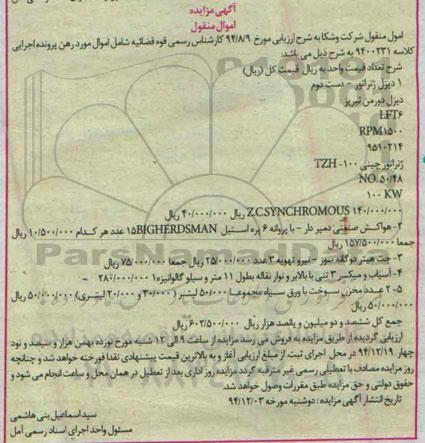 آگهی مزایده
اموال منقول
اموال منقول شرکت وشکا به شرح ارزیابی مورخ ۹۴/۸/۹ کارشناس رسمی قوه قضائیه شامل اموال مورد رهن پرونده اجرایی
کلاسه ۹۴۰۰۲۳۱ به شرح ذیل می باشد:
شرح تعداد قیمت واحد به ریال قیمت کل (ریال)
۱ دیزل ژنراتور - دست دوم
دیزل دورمن تبریز
LFT۶
RPM۱۵۰۰
۹۵۱۰۲۱۴
ژنراتور چینی TZH -۱۰۰
NO. ۵۰/۴۸
۱۰۰ KW
Z.C.SYNCHROMOUS ۱۴۰/۰۰۰/۰۰۰ ریال ۴۰/۰۰۰/۰۰۰ ریال
۲- هواکش صنعتی دمپر دار - با پروانه ۶ پره استیل BIGHERDSMAN ۱۵ عدد هر کدام ۱۰/۵۰۰/۰۰۰ ریال
جمعا ۱۵۷/۵۰۰/۰۰۰ ریال
۳- جت هیتر دوگانه سوز - نیرو تهویه ۳ عدد ۲۵/۰۰۰/۰۰۰ ریال جمعا ۷۵/۰۰۰/۰۰۰ ریال
۴- آسیاب و میکسر ۳ تنی با بالابر و نوار نقاله بطول ۱۱ متر و سیلو گالوانیزه ۱ ۲۸۰/۰۰۰/۰۰۰
۵- ۲ عدد مخزن سوخت با ورق سیاه مجموعا ۵۰/۰۰۰ لیتر (۳۰/۰۰۰ و ۲۰/۰۰۰ لیتری) ۵۰/۰۰۰/۰۰۰ ریال
۵۰/۰۰۰/۰۰۰ ریال
جمع کل ششصد و دو میلیون و پانصد هزار ریال ۶۰۲/۵۰۰/۰۰۰ ریال
ارزیابی گردیده از طریق مزایده به فروش می رسد مزایده از ساعت ۹ الی ۱۲ شنبه مورخ نوزده بهمن هزار و سیصد و نود
چهار ۹۴/۱۲/۱۹ در محل اجرای ثبت از مبلغ ارزیابی آغاز و به بالاترین قیمت پیشنهادی نقدا فروخته خواهد شد و چنانچه
روز مزایده مصادف با تعطیلی رسمی غیر مترقبه گردد مزایده روز اداری بعد از تعطیل در همان محل و ساعت انجام می شود و
حقوق دولتی و حق مزایده طبق مقررات وصول خواهد شد.
تاریخ انتشار آگهی مزایده: دوشنبه مورخه ۹۴/۱۲/۰۳
سید اسماعیل بنی هاشمی
مسئول واحد اجرای اسناد رسمی آمل